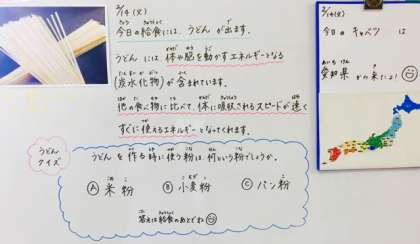 2/14(火)
今日の給食には、うどん が出ます。
うどん には 体や脳を動かすエネルギーとなる
(炭水化物)が含まれています。
他の食べ物に比べて、体に吸収されるスピードが速く
すぐに使えるエネルギーとなってくれます。
うどん
クイズ
うどんを作る時に使う粉は、何という粉でしょうか。
Ⓐ 米粉 Ⓑ 小麦粉 Ⓒ パン粉
答えは給食のあとでね
2/14(火)
今日の キャベツ は
愛知県 から来たよ!